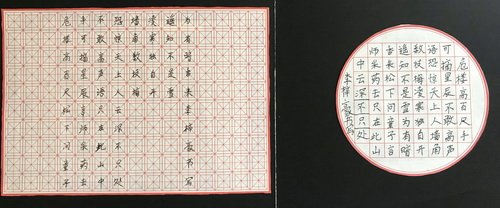 危楼高百尺松下问童子
手可摘星辰言师采药去
不敢高声语只在此山中
恐惊天上人云深不只处
墙角数枝梅
凌寒独自开
遥知不是雪
为有暗香来李梓薇书写
危楼高百尺手
可摘星辰不敢高声
语恐惊天上人墙角
数枝梅凌寒独自开
遥知不是雪为有暗
香来松下问童子言
师采药去只在此山
中云深不只处
李梓薇书写